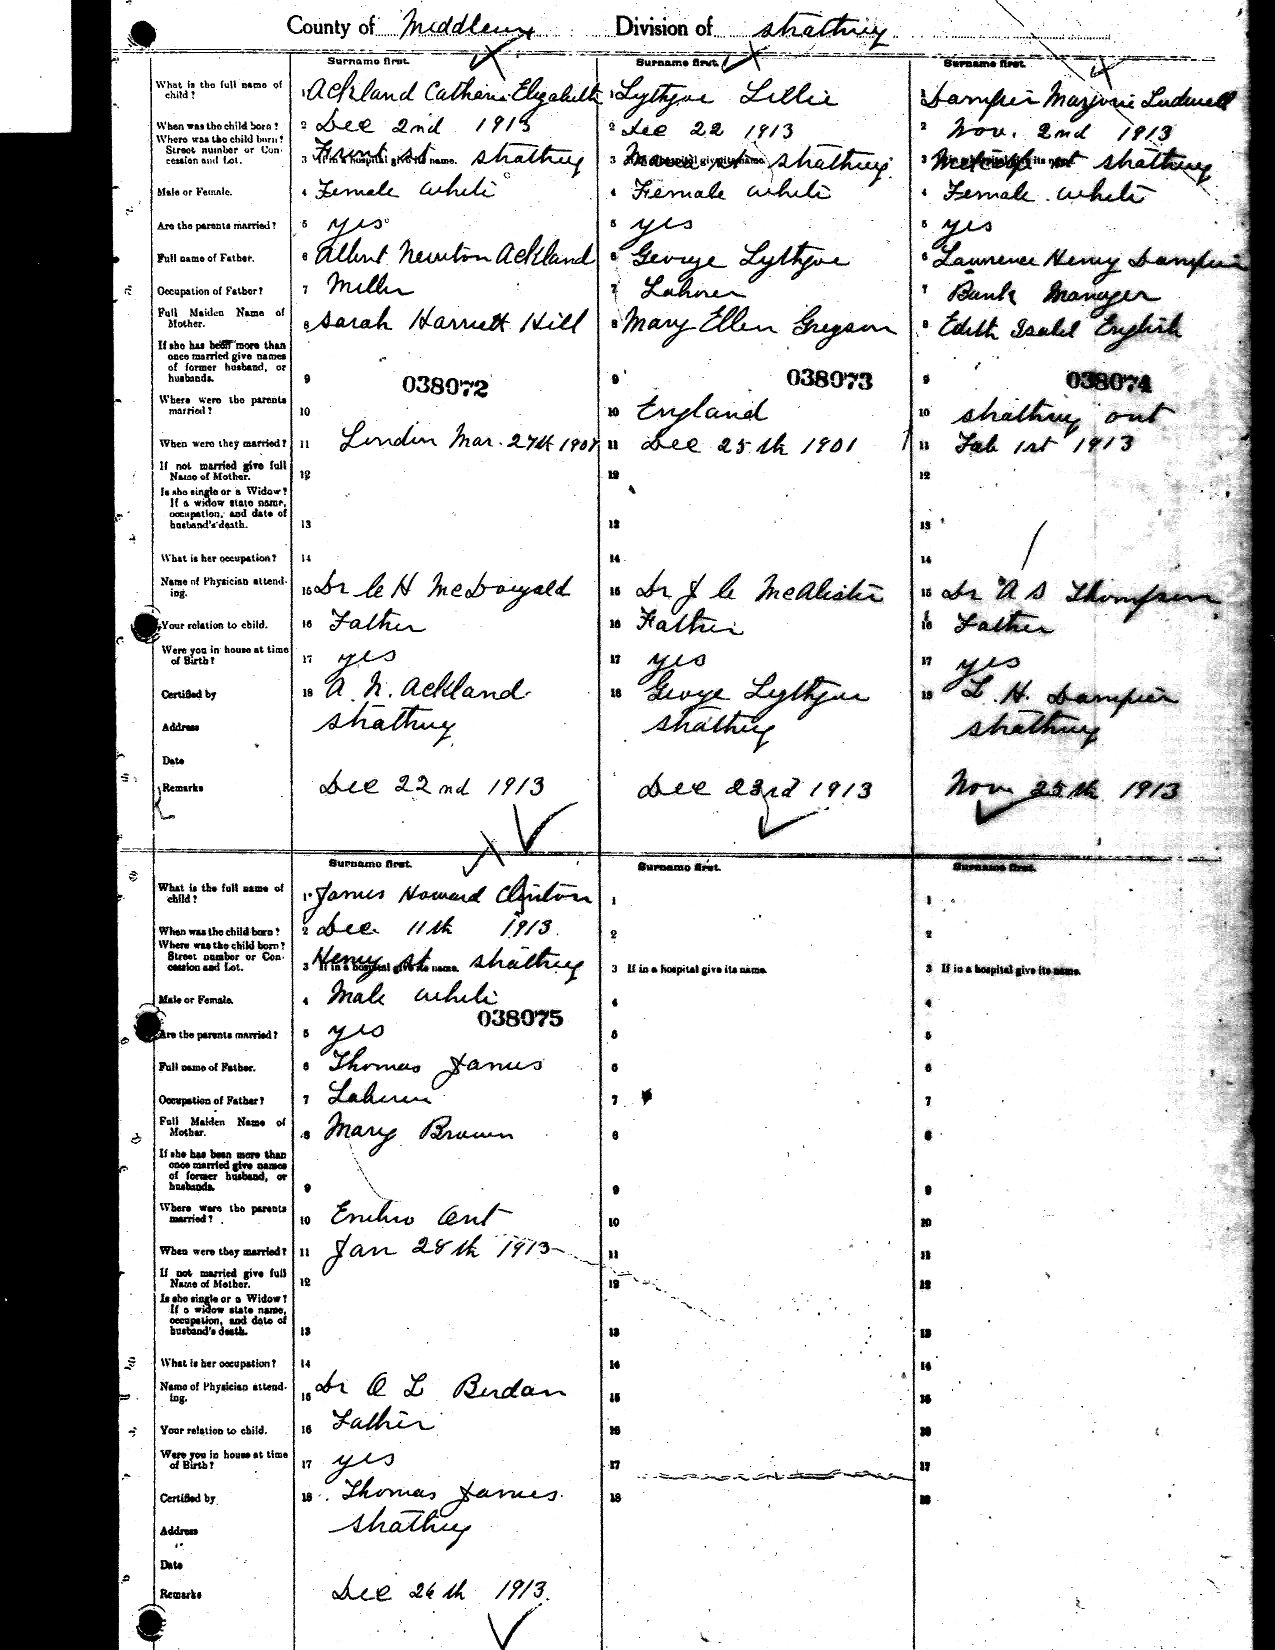 County of Middlesex Division of Strathroy
Surname first. Surname first. Surname first.
What is the full name of child? 1 Ackland Catherine Elizabeth 1 Lythgoe Lillie 1 Dampier Marjorie Ludwell
When was the child born? 2 Dec 2nd 1913 2 Dec 22 1913 2 Nov. 2nd 1913
Where was the child born? Street number or Concession and Lot. 3 If in a hospital give its name. Front st Strathroy 3 Strathroy 3 Metcalfe st Strathroy
Male or Female. 4 Female white 4 Female white 4 Female white
Are the parents married? 5 yes 5 yes 5 yes
Full name of Father. 6 Albert Newton Ackland 6 George Lythgoe 6 Lawrence Henry Dampier
Occupation of Father? 7 Miller 7 Laborer 7 Bank Manager
Full Maiden Name of Mother. 8 Sarah Harriett Hill 8 Mary Ellen Gregson 8 Edith Isabel English
If she has been more than once married give names of former husband, or husbands. 9 038072 9 038073 9 038074
Where were the parents married? 10 10 England 10 Strathroy Ont
When were they married? 11 London Mar. 27th 1907 11 Dec 25th 1901 11 Feb 1st 1913
If not married give full Name of Mother. 12 12 12
Is she single or a Widow? If a widow state name, occupation, and date of husband's death. 13 13 13
What is her occupation? 14 14 14
Name of Physician attending. 15 Dr C H McDougald 15 Dr J C McAlister 15 Dr A S Thompson
Your relation to child. 16 Father 16 Father 16 Father
Were you in house at time of Birth? 17 yes 17 yes 17 yes
Certified by 18 A. N. Ackland 18 George Lythgoe 18 L. H. Dampier
Address Strathroy Strathroy Strathroy
Date
Remarks Dec 22nd 1913 Dec 23rd 1913 Nov 25th 1913
Surname first. Surname first. Surname first.
What is the full name of child? 1 James Howard Clinton 1 1
When was the child born? 2 Dec 11th 1913 2 2
Where was the child born? Street number or Concession and Lot. 3 If in a hospital give its name. Henry st Strathroy 3 If in a hospital give its name. 3 If in a hospital give its name.
Male or Female. 4 Male white 4 4
038075
Are the parents married? 5 yes 5 5
Full name of Father. 6 Thomas James 6 6
Occupation of Father? 7 Laborer 7 7
Full Maiden Name of Mother. 8 Mary Brown 8 8
If she has been more than once married give names of former husband, or husbands. 9 9 9
Where were the parents married? 10 Embro Ont 10 10
When were they married? 11 Jan 28th 1913 11 11
If not married give full Name of Mother. 12 12 12
Is she single or a Widow? If a widow state name, occupation, and date of husband's death. 13 13 13
What is her occupation? 14 14 14
Name of Physician attending. 15 Dr O L Berdan 15 15
Your relation to child. 16 Father 16 16
Were you in house at time of Birth? 17 yes 17 17
Certified by 18 Thomas James 18 18
Address Strathroy
Date
Remarks Dec 26th 1913.